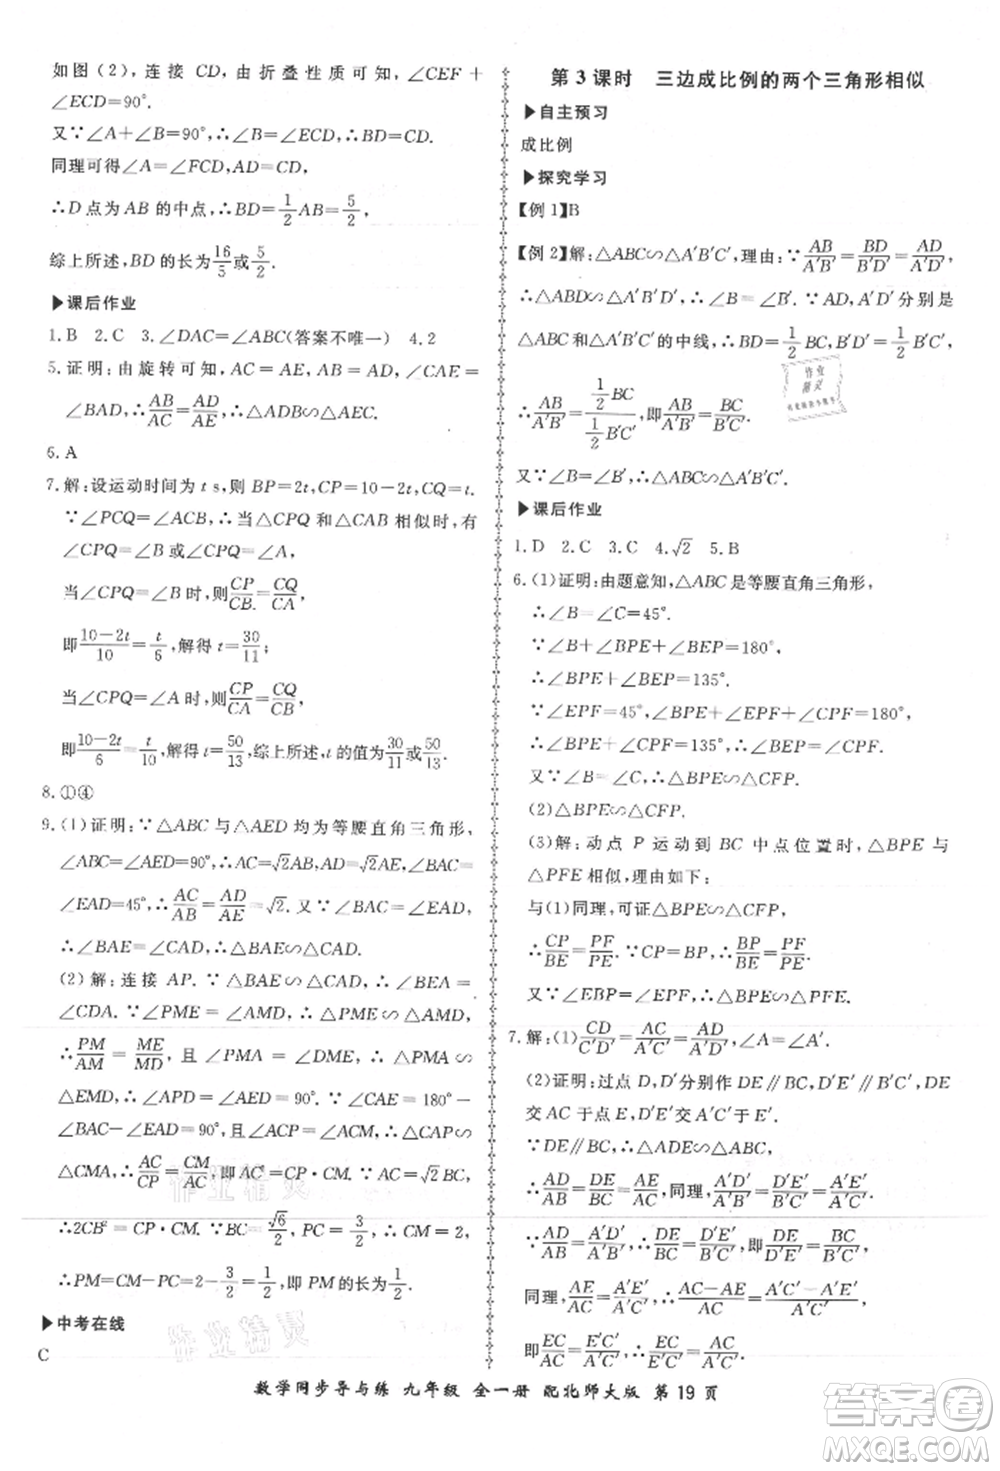 如图(2),连接 CD,由折叠性质可知,∠CEF+
∠ECD=90°.
又∵∠A+∠B=90°,∴∠B=∠ECD,∴BD=CD.
同理可得∠A=∠FCD,AD=CD,
∴D 点为 AB 的中点,∴BD=1/2AB=5/2,
综上所述,BD 的长为16/5或5/2.
▶课后作业
1.B 2.C 3.∠DAC=∠ABC(答案不唯一) 4.2
5.证明:由旋转可知,AC=AE,AB=AD,∠CAE=
∠BAD,∴AB/AC=AD/AE,∴△ABD∽△ACE.
6.A
7.解:设运动时间为 t s,则 BP=2t,CP=10-2t,CQ=t.
∵∠PCQ=∠ACB,∴当△CPQ 和△CAB 相似时,有
∠CPQ=∠B 或∠CPQ=∠A.
当∠CPQ=∠B 时,则有CP/CB=CQ/CA,
即(10-2t)/10=t/6,解得 t=30/11;
当∠CPQ=∠A 时,则有CP/CA=CQ/CB,
即(10-2t)/6=t/10,解得 t=50/13,综上所述,t 的值为30/11或50/13.
8.①④
9.(1)证明:∵△ABC 与△AED 均为等腰直角三角形,
∠ABC=∠AED=90°,∴AC=√2AB,AD=√2AE,
∠EAD=45°,∴AC/AB=AD/AE=√2.又∵∠BAC=∠EAD,
∴∠BAE=∠CAD,∴△BAE∽△CAD.
(2)解:连接 AP.∵△BAE∽△CAD,∴∠BEA=
∠CDA.∵∠PME=∠AMD,∴△PME∽△AMD,
∴PM/AM=ME/MD.∵∠PMA=∠EMD,∴△PMA∽△
EMD,∴∠APD=∠AED=90°.∵∠CAE=180°-
∠BAC-∠EAD=90°,且∠ACP=∠MCA,∴△CAP∽
△CMA,∴AC/CP=CM/AC,即 AC²=CP·CM.∵AC=√2BC,
∴2CB²=CP·CM.∵BC=√6/2,PC=3/2,∴CM=2,
∴PM=CM-PC=2-3/2=1/2,即 PM 的长为1/2.
▶中考在线
C
第 3 课时 三边成比例的两个三角形相似
▶自主预习
成比例
▶探究学习
【例 1】B
【例 2】解:△ABC∽△A′B′C′,理由:∵AB/A′B′=BD/B′D′=AD/A′D′,
∴△ABD∽△A′B′D′,∴∠B=∠B′,∵AD、A′D′分别是
△ABC 和△A′B′C′的中线,∴BD=1/2BC,B′D′=1/2B′C′,
∴AB/A′B′=(1/2BC)/(1/2B′C′),即AB/A′B′=BC/B′C′.
又∵∠B=∠B′,∴△ABC∽△A′B′C′.
▶课后作业
1.D 2.C 3.C 4.√2 5.B
6.(1)证明:由题意知,△ABC 是等腰直角三角形,
∴∠B=∠C=45°.
∵∠B+∠BPE+∠BEP=180°,
∴∠BPE+∠BEP=135°.
∵∠EPF=45°,∠BPE+∠EPF+∠CPF=180°,
∴∠BPE+∠CPF=135°,∴∠BEP=∠CPF.
又∵∠B=∠C,∴△BPE∽△CFP.
(2)△BPE∽△CFP.
(3)解:动点 P 运动到 BC 中点位置时,△BPE 与
△PFE 相似,理由如下:
与(1)同理,可证△BPE∽△CFP,
∴CP/BE=PF/PE.∵CP=BP,∴BP/BE=PF/PE.
又∵∠EBP=∠EPF,∴△BPE∽△PFE.
7.解:(1)CD/C′D′=AC/A′C′=AD/A′D′,∠A=∠A′.
(2)证明:过点 D,D′分别作 DE∥BC,D′E′∥B′C′,DE
交 AC 于点 E,D′E′交 A′C′于点 E′.
∵DE∥BC,∴△ADE∽△ABC,
∴AD/AB=DE/BC=AE/AC,同理,A′D′/A′B′=D′E′/B′C′=A′E′/A′C′,
∵AD/AB=A′D′/A′B′,∴DE/BC=D′E′/B′C′,即DE/D′E′=BC/B′C′,
同理,AE/A′E′=AC/A′C′,∴(AC-AE)/(A′C′-A′E′)=AC/A′C′,
即EC/E′C′=AC/A′C′,∴EC/E′C′=BC/B′C′,
数学同步导与练 九年级 全一册 配北师大版 第 19 页
作业
精灵
作业精灵
作业精灵
答案圈
MXQE.COM